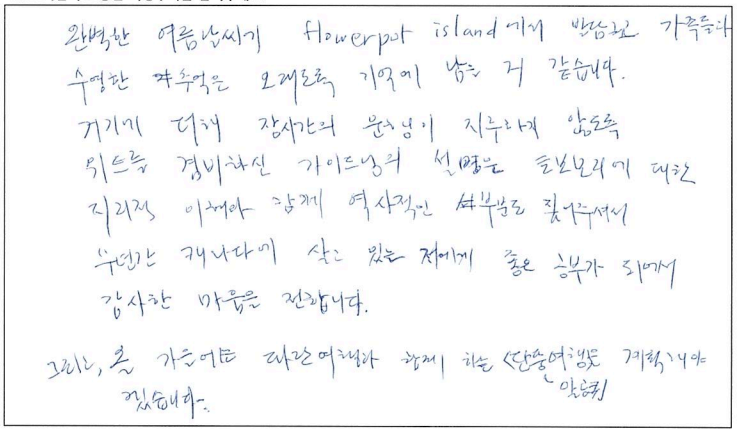 완벽한 여름날씨게 flowerpot island에서 반담그고 가족들과
수영한 추억은 오래도록 기억에 남는 거 같습니다.
거기에 더해 장시간의 운행이 지루하지 않도록
위트를 겸비하신 가이드님의 설명은 토보모리에 대한
지리적 이해와 함께 역사적인 부분도 짚어주셔서
수년간 캐나다에 살고 있는 저에게 좋은 공부가 되어서
감사한 마음을 전합니다.
그리고, 올 가을에도 파란여행과 함께 하는 <단풍여행>못 계획해야
알공퀸
겠습니다.